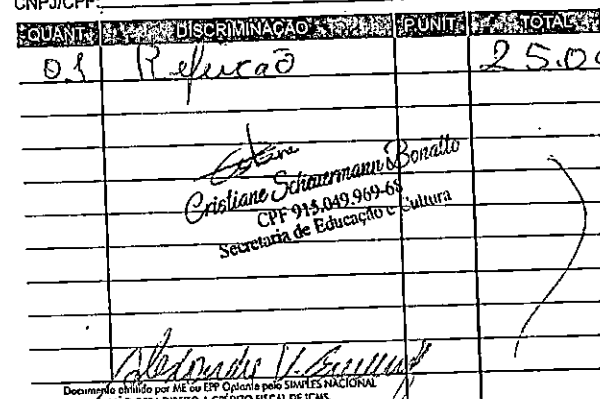 CNPJ/CPF:
QUANT. DISCRIMINAÇÃO P.UNIT. TOTAL
01 Refeição 25.00
Cristiane Scheuermann Bonatto
CPF 913.049.969-68
Secretaria de Educação e Cultura
Documento emitido por ME ou EPP Optante pelo SIMPLES NACIONAL
DIREITO A CRÉDITO FISCAL DE ICMS